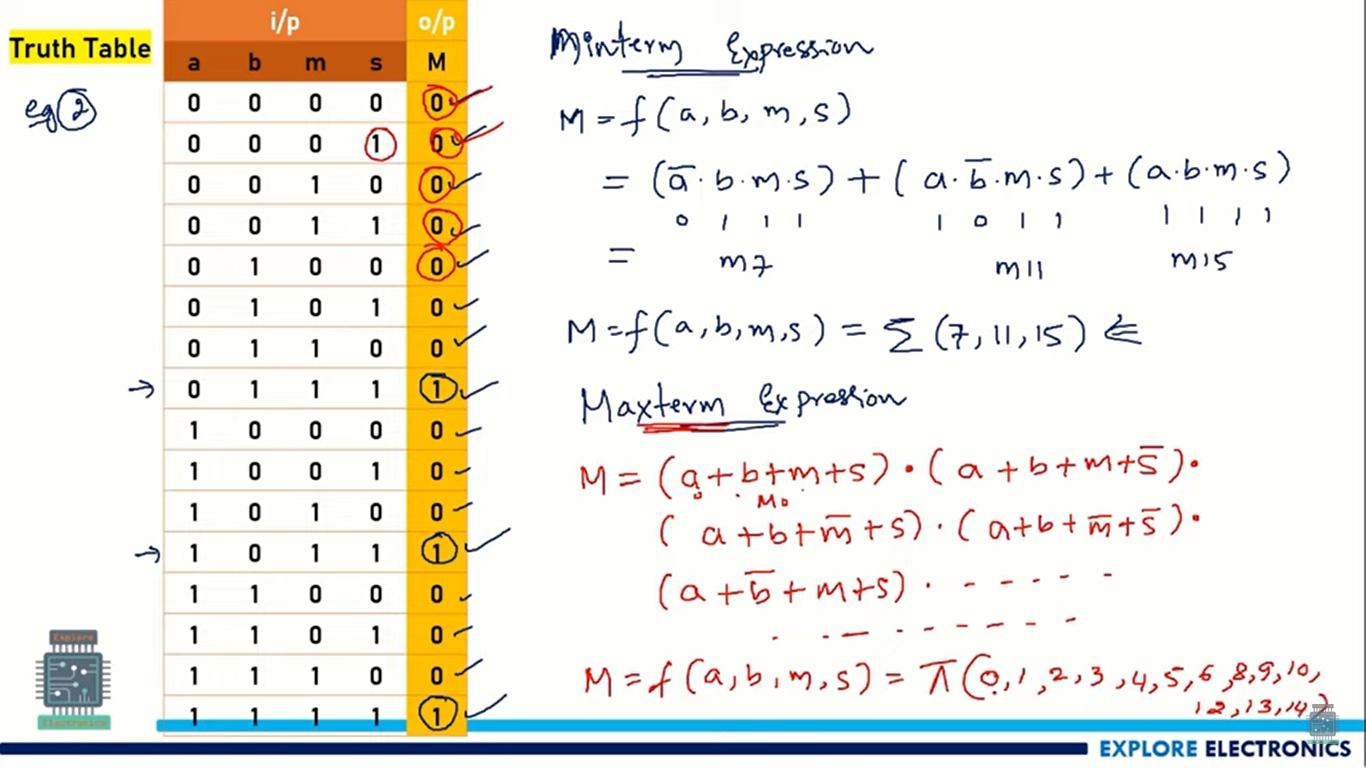 Truth Table
eg 2
i/p o/p
a b m s M
0 0 0 0 0
0 0 0 1 0
0 0 1 0 0
0 0 1 1 0
0 1 0 0 0
0 1 0 1 0
0 1 1 0 0
→ 0 1 1 1 1
1 0 0 0 0
1 0 0 1 0
1 0 1 0 0
→ 1 0 1 1 1
1 1 0 0 0
1 1 0 1 0
1 1 1 0 0
1 1 1 1 1
Minterm Expression
M = f(a, b, m, s)
= (a̅·b·m·s) + (a·b̅·m·s) + (a·b·m·s)
0 1 1 1 1 0 1 1 1 1 1 1
= m7 m11 m15
M = f(a, b, m, s) = Σ(7, 11, 15) ⇐
Maxterm Expression
M = (a + b + m + s) · (a + b + m + s̅) ·
M0
(a + b + m̅ + s) · (a + b + m̅ + s̅) ·
(a + b̅ + m + s) · - - - - - -
- - - - - - - -
M = f(a, b, m, s) = π(0, 1, 2, 3, 4, 5, 6, 8, 9, 10,
12, 13, 14)
Explore
Electronics
EXPLORE ELECTRONICS